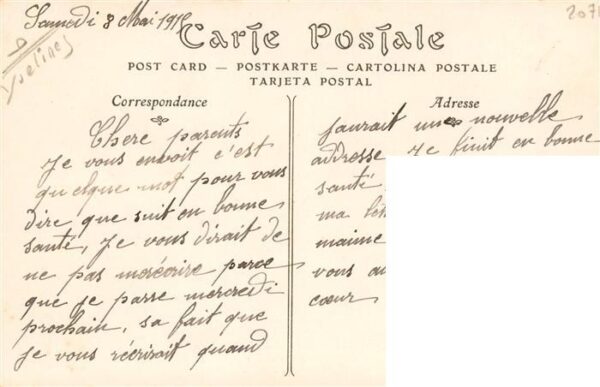 Samedi 8 Mai 1915
2071
Yvelines
Carte Postale
POST CARD — POSTKARTE — CARTOLINA POSTALE
TARJETA POSTAL
Correspondance
Chere parents
Je vous envoit c'est
quelque mot pour vous
dire que suit en bonne
santé, Je vous dirait de
ne pas mérécrire parce
que je passe mercredi
prochain, sa fait que
Je vous récrirait quand
Adresse
jaurait une nouvelle
addresse Je finit en bonne
santé
ma
maime
vous
cœur